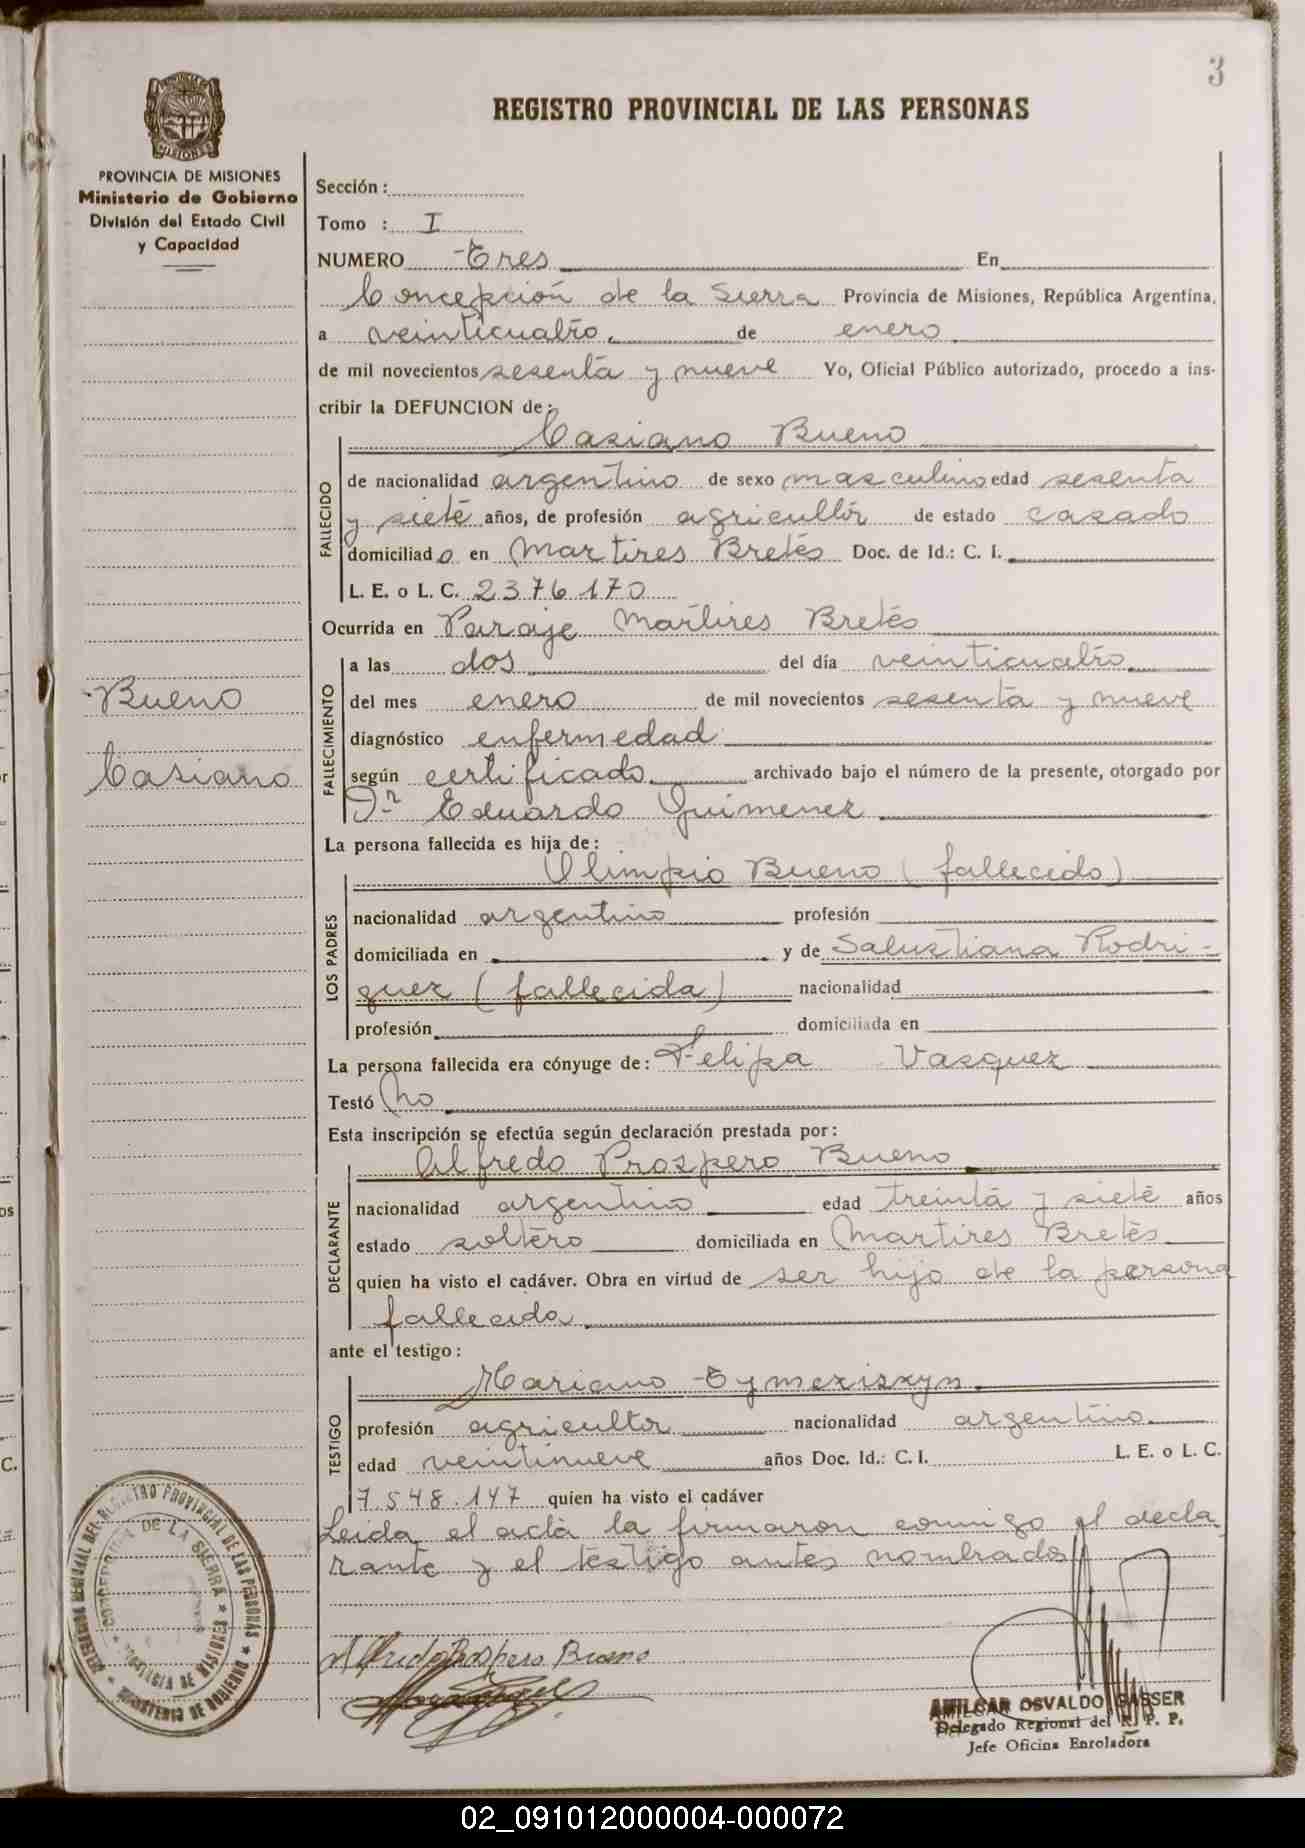 3
REGISTRO PROVINCIAL DE LAS PERSONAS
PROVINCIA DE MISIONES
Ministerio de Gobierno
División del Estado Civil
y Capacidad
Sección :
Tomo : I
NUMERO Tres En
Concepción de la Sierra Provincia de Misiones, República Argentina,
a veinticuatro de enero
de mil novecientos sesenta y nueve Yo, Oficial Público autorizado, procedo a ins-
cribir la DEFUNCION de:
Casiano Bueno
FALLECIDO
de nacionalidad argentino de sexo masculino edad sesenta
y siete años, de profesión agricultor de estado casado
domiciliado en Martires Bretés Doc. de Id.: C. I.
L. E. o L. C. 2376170
Ocurrida en Paraje Martires Bretés
FALLECIMIENTO
a las dos del día veinticuatro
del mes enero de mil novecientos sesenta y nueve
diagnóstico enfermedad
según certificado archivado bajo el número de la presente, otorgado por
Dr Eduardo Guimenez
Bueno
Casiano
La persona fallecida es hija de:
Olimpio Bueno (fallecido)
LOS PADRES
nacionalidad argentino profesión
domiciliada en y de Salustiana Rodri-
guez (fallecida) nacionalidad
profesión domiciliada en
La persona fallecida era cónyuge de: Felipa Vasquez
Testó No
Esta inscripción se efectúa según declaración prestada por:
Alfredo Prospero Bueno
DECLARANTE
nacionalidad argentino edad treinta y siete años
estado soltero domiciliada en Martires Bretés
quien ha visto el cadáver. Obra en virtud de ser hijo de la persona
fallecida
ante el testigo:
Mariano
TESTIGO
profesión agricultor nacionalidad argentino
edad veintinueve años Doc. Id.: C. I. L. E. o L. C.
7.548.147 quien ha visto el cadáver
Leida el acta la firmaron conmigo el decla-
rante y el testigo antes nombrados
Alfredo Prospero Bueno
DELEGACION REGIONAL DEL REGISTRO PROVINCIAL DE LAS PERSONAS
MINISTERIO DE GOBIERNO
CONCEPCION DE LA SIERRA
PROVINCIA DE MISIONES
AMILCAR OSVALDO GASSER
Delegado Regional del R. P. P.
Jefe Oficina Enroladora
02_091012000004-000072